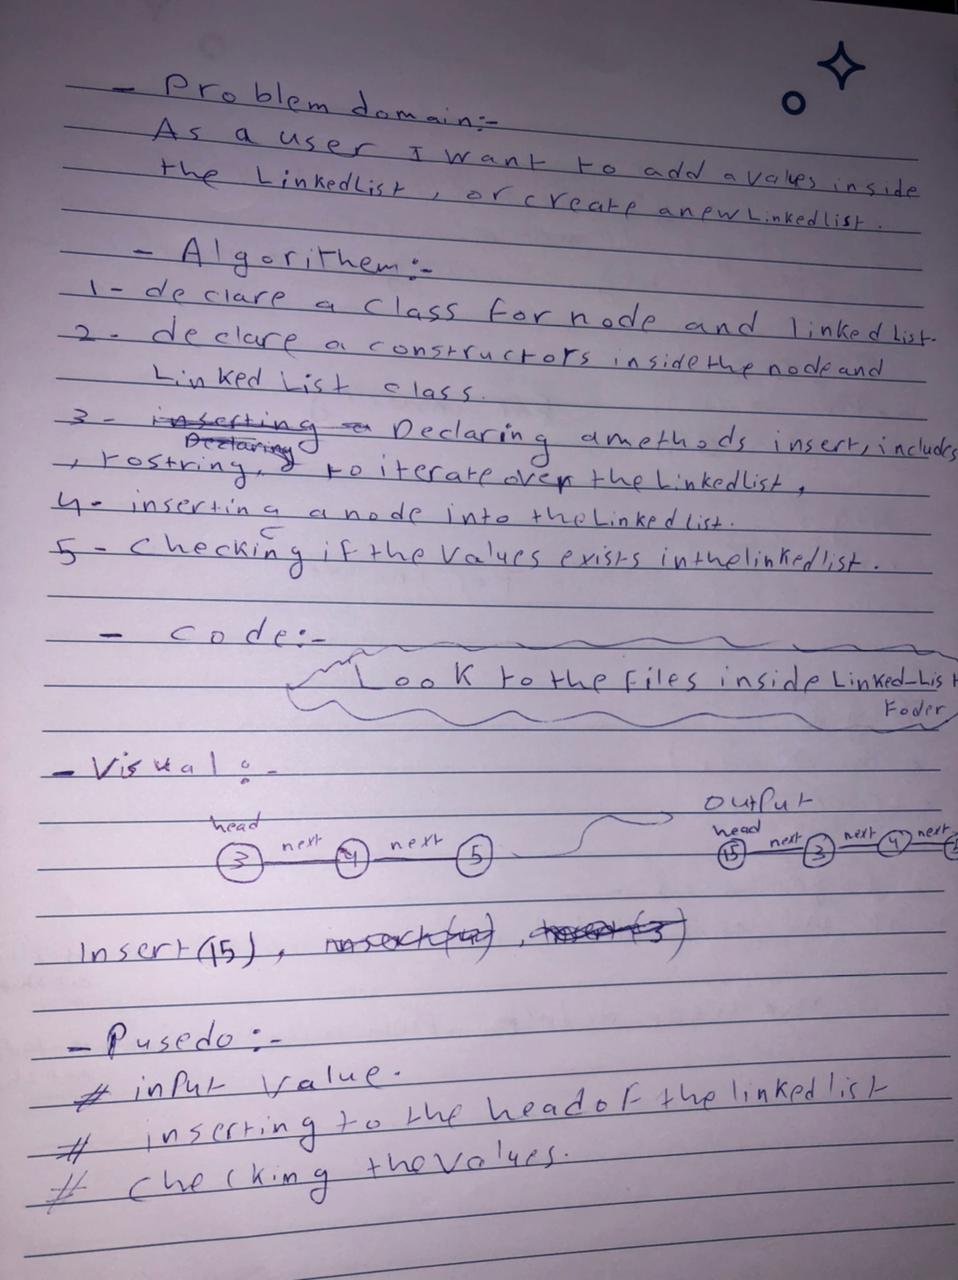 - Problem domain:-
As a user I want to add a values inside
the LinkedList, or create a new Linkedlist.
- Algorithem:-
1- declare a class for node and linked List.
2- declare a constructors inside the node and
Linked List class.
3- inserting a Declaring a methods insert, includes
Declaring
, tostring, to iterate over the LinkedList,
4- inserting a node into the Linked list.
5- checking if the values exists in the linked list.
- code:-
Look to the files inside Linked-List
Foder
- Visual:-
output
head next next
3 4 5
head next next next
15 3 4
Insert(15), insert(4), insert(3)
- Pusedo:-
# input value.
# inserting to the head of the linked list
# checking the values.